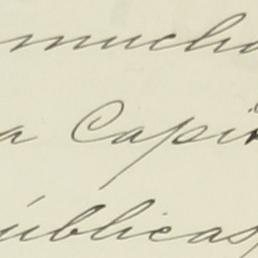 mucho
a Capi
úblicas